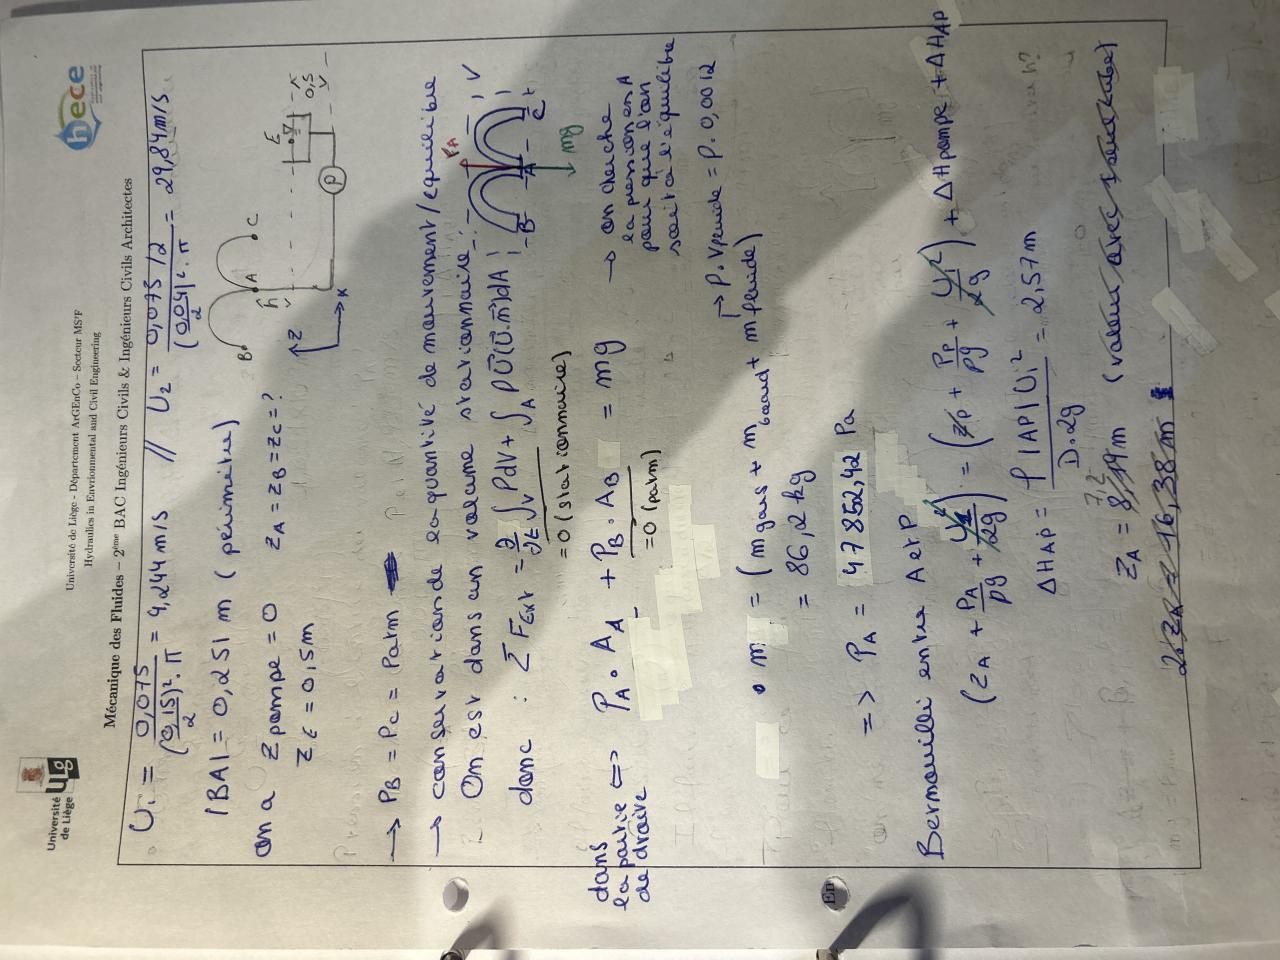 Université de Liège
Université de Liège - Département ArGEnCo - Secteur MS²F
Hydraulics in Environmental and Civil Engineering
hece
Mécanique des Fluides – 2ème BAC Ingénieurs Civils & Ingénieurs Civils Architectes
U₁ = 0,075 / ((0,15/2)² . π) = 4,244 m/s // U₂ = 0,075/2 / ((0,04/2)² . π) = 29,84 m/s
|BA| = 0,251 m (périmètre)
on a z pompe = 0 zA = zB = zC = ?
zE = 0,5 m
B A C h E 0,5 P z x
→ PB = PC = Patm
→ conservation de la quantité de mouvement / équilibre
On est dans un volume stationnaire
donc : Σ FExt = ∂/∂t ∫v ρ dV + ∫A ρ U̅ (U̅.n̅) dA
= 0 (stationnaire)
PA V B A C mg
dans la partie de droite ⇔ PA . AA + PB . AB = mg
= 0 (patm)
→ on cherche la pression en A pour que l'on soit à l'équilibre
• m = (m gaus + m + m fluide)
→ ρ . Vfluide = ρ . 0,0012
= 86,2 kg
=> PA = 47852,42 Pa
Bernouilli entre A et P
(zA + PA/ρg + U₁²/2g) = (zP + PP/ρg + U₁²/2g) + ΔHpompe + ΔHAP
ΔHAP = f |AP| U₁² / D.2g = 2,57 m
zA = 8,19 m 7,2 (valeur avec
2. zA = 16,38 m
En